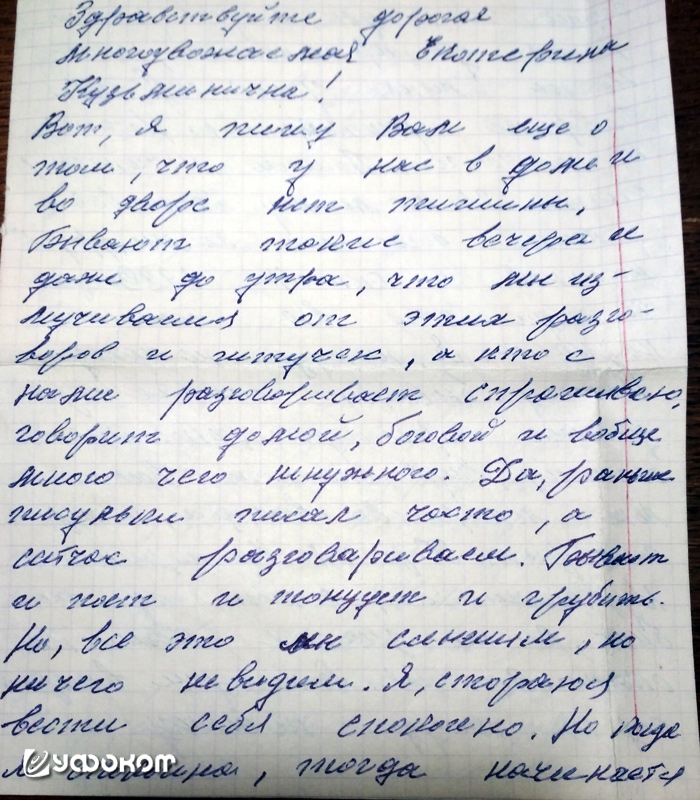 Здравствуйте дорогая
многоуважаемая Екатерина
Кузьминична!
Вот, я пишу Вам еще о
том, что у нас в доме и
во дворе нет тишины,
Бывают такие вечера и
даже до утра, что мы из-
мучиваемся от этих разго-
воров и шту чек, а кто с
нами разговаривает спрашиваю,
говорит домой, боговой и вобще
много чего ненужного. Да, раньше
письмы писал часто, а
сейчас разговариваем. Бывает
и поет и танцует и грубить.
Но, все это мы слышим, но
ничего невидем. Я, стораюся
вести себя спокоено. Но когда
я спокойна, тогда начинается
Уфоком